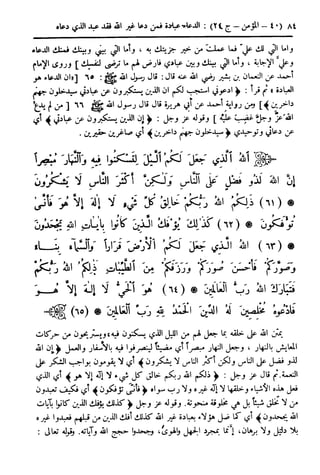 ٨٤ (٤٠ - المؤمن - ج ٢٤) : الدعاء عبادة فمن دعا غير الله فقد عبد الذي دعاه
واما التي لك عليّ فما عملت من خير جزيتك به ، وأما التي بيني وبينك فمنك الدعاء
وعليّ الإجابة ، وأما التي بينك وبين عبادي فارض لهم ما ترضى لنفسك ] وروى الإمام
أحمد عن النعمان بن بشير رضي الله عنه قال : قال رسول الله ﷺ : ٦٥ [ إن الدعاء هو
العبادة ثم قرأ : ﴿ ادعوني استجب لكم ان الذين يستكبرون عن عبادتي سيدخلون جهنم
داخرين ﴾ ] ومن رواية أحمد عن أبي هريرة قال قال رسول الله ﷺ ٦٦ [ من لم يدع
الله عزّ وجلّ غضب عليه ] وقوله عز وجل : ﴿ إن الذين يستكبرون عن عبادتي ﴾ أي
عن دعائي وتوحيدي ﴿ سيدخلون جهنم داخرين ﴾ أي صاغرين حقيرين .
اللَّهُ الَّذِي جَعَلَ لَكُمُ اللَّيْلَ لِتَسْكُنُوا فِيهِ وَالنَّهَارَ مُبْصِراً
إِنَّ اللهَ لَذُو فَضْلٍ عَلَى النَّاسِ وَلَكِنَّ أَكْثَرَ النَّاسِ لَا يَشْكُرُونَ
(٦١) ذَلِكُمُ اللهُ رَبُّكُمْ خَالِقُ كُلِّ شَيْءٍ لَا إِلَهَ إِلَّا هُوَ فَأَنَّى
تُؤْفَكُونَ (٦٢) كَذَلِكَ يُؤْفَكُ الَّذِينَ كَانُوا بِآيَاتِ اللهِ يَجْحَدُونَ
(٦٣) اللهُ الَّذِي جَعَلَ لَكُمُ الْأَرْضَ قَرَاراً وَالسَّمَاءَ بِنَاءً
وَصَوَّرَكُمْ فَأَحْسَنَ صُوَرَكُمْ وَرَزَقَكُمْ مِنَ الطَّيِّبَاتِ ذَلِكُمُ اللهُ رَبُّكُمْ
فَتَبَارَكَ اللهُ رَبُّ الْعَالَمِينَ (٦٤) هُوَ الْحَيُّ لَا إِلَهَ إِلَّا هُوَ
فَادْعُوهُ مُخْلِصِينَ لَهُ الدِّينَ الْحَمْدُ لِلَّهِ رَبِّ الْعَالَمِينَ (٦٥)
يمتن الله على خلقه بما جعل لهم من الليل الذي يسكنون فيه ويستريحون من حركات
المعايش بالنهار ، وجعل النهار مبصراً أي مضيئاً ليتصرفوا فيه بالأسفار والعمل ﴿ إن الله
لذو فضل على الناس ولكن أكثر الناس لا يشكرون ﴾ أي لا يقومون بواجب الشكر على
النعمة. ثم قال عز وجل : ﴿ ذلكم الله ربكم خالق كل شيء لا إله إلا هو ﴾ أي الذي
فعل هذه الأشياء وخلقها لا إله غيره ولا رب سواه ﴿ فأنى تؤفكون ﴾ أي فكيف تعبدون
من لا تخلق شيئاً بل هي مخلوقة منحوتة. وقوله عز وجل ﴿ كذلك يؤفك الذين كانوا بآيات
الله يجحدون ﴾ أي كما ضل هؤلاء بعبادة غير الله كذلك أفك الذين من قبلهم فعبدوا غيره
بلا دليل ولا برهان، إنما بمجرد الجهل والهوى، وجحدوا حجج الله وآياته. وقوله تعالى :